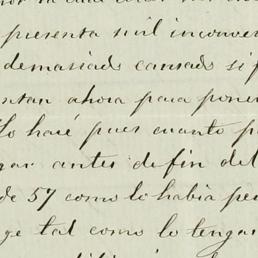 presenta mil inconven
demasiado cansado si p
ntan ahora para poner
Yo haré pues cuanto p
antes de fin del
de 57 como lo habia pen
ge tal como lo tengan